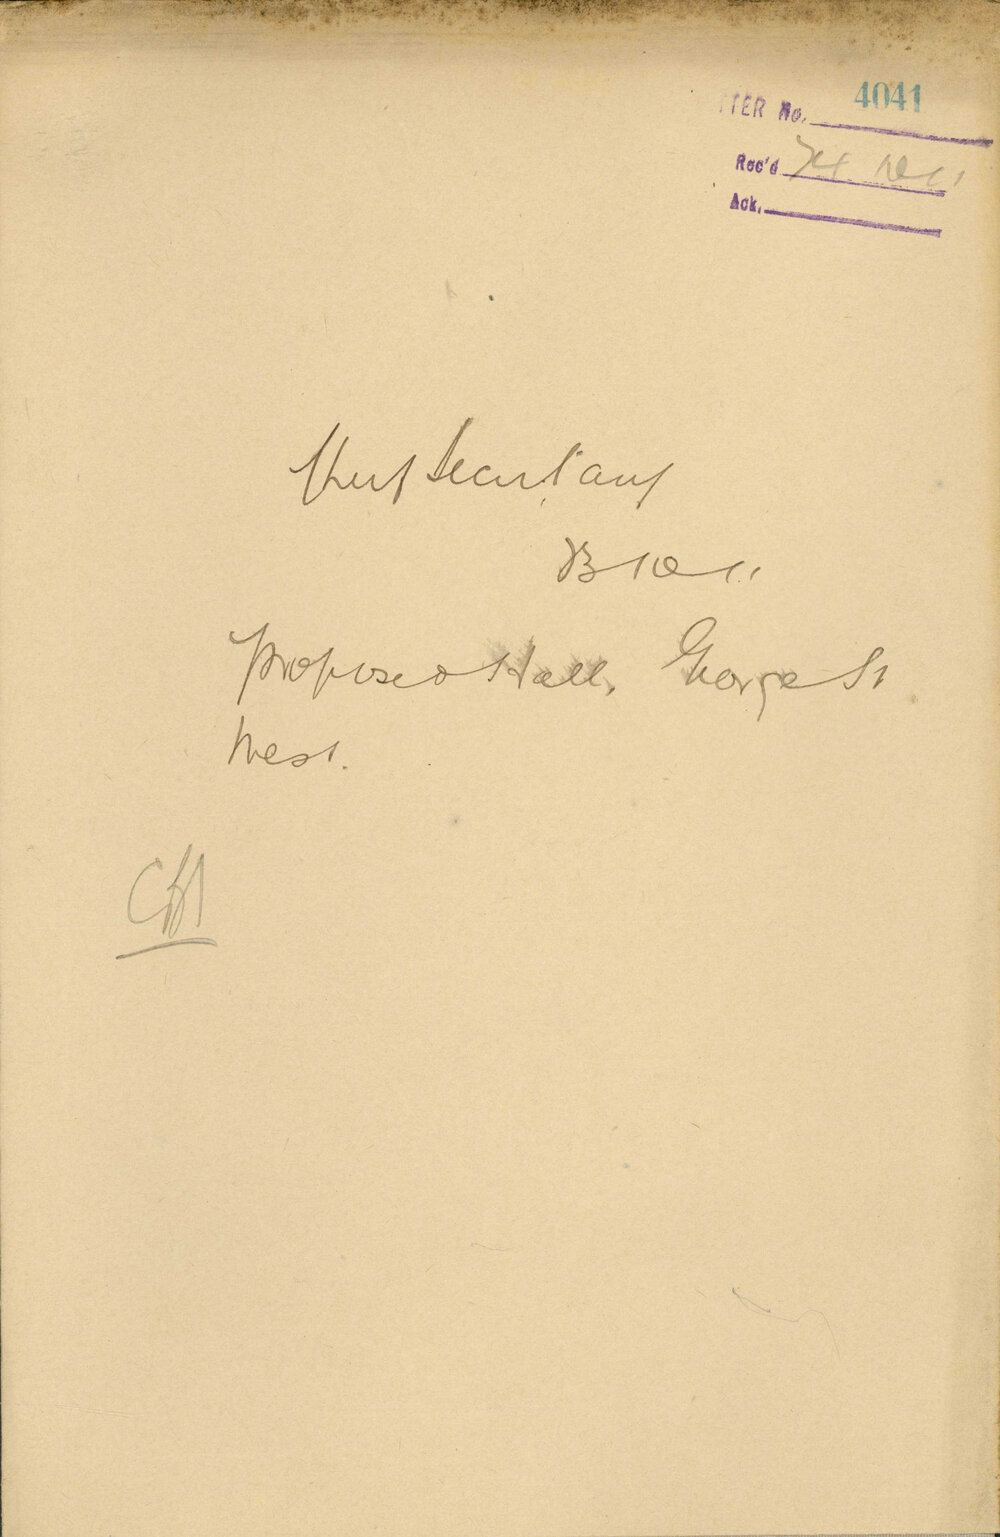 TTER No. 4041
Rec'd 24. 10. 11
Ack.
Chief Secretary
B 10 11
Proposed Hall, George St
West.